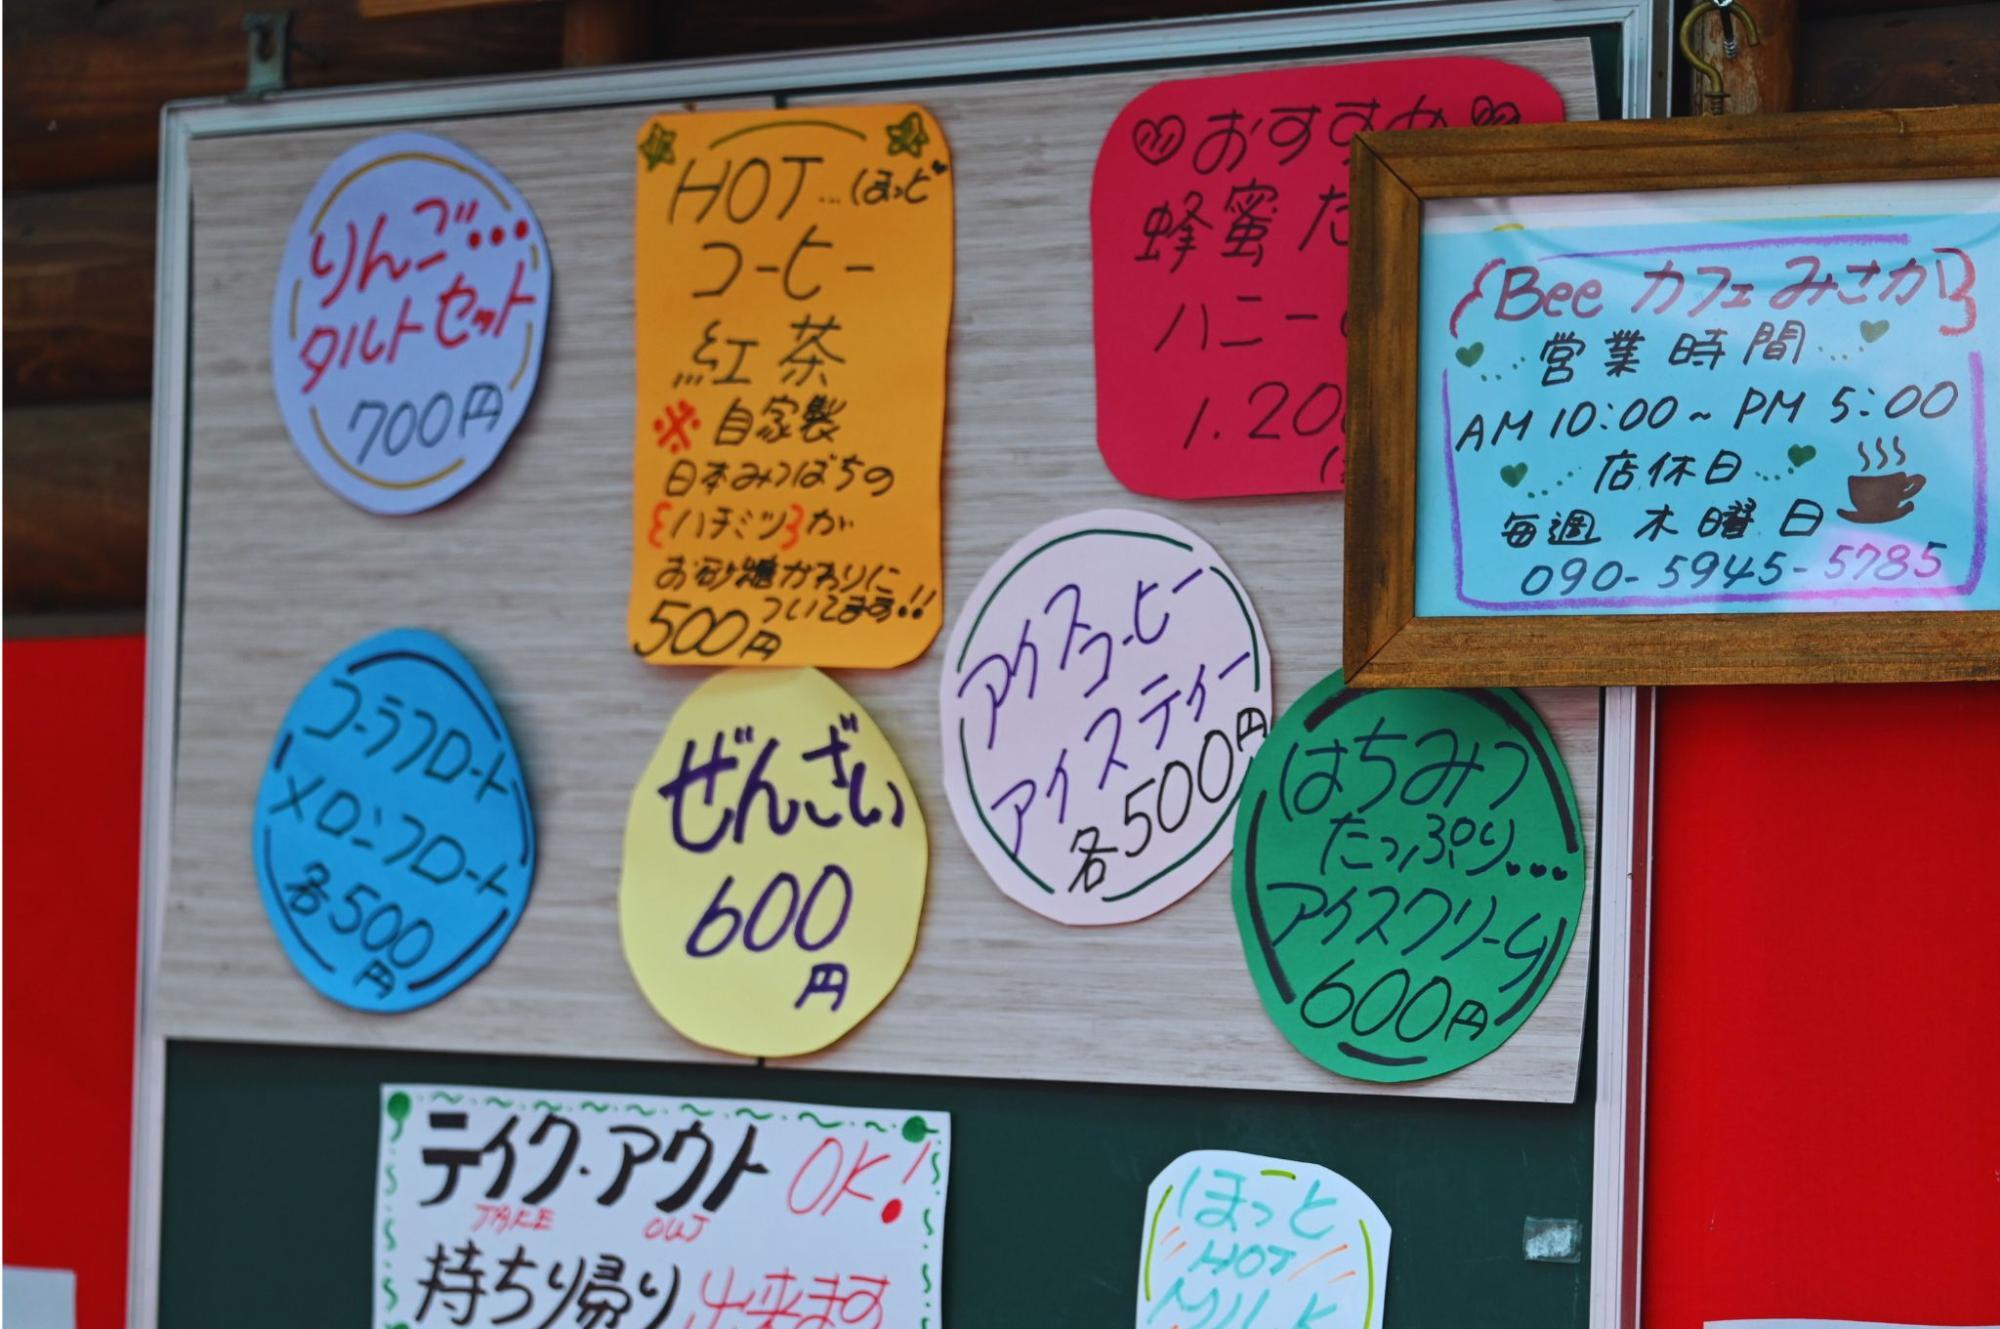 りんご...
タルトセット
700円
HOT...ほっと
コーヒー
紅茶
※自家製
日本みつばちの
{ハチミツ}が
お砂糖かわりに
ついてます!!
500円
おすすめ
蜂蜜た
ハニー
1.20
Bee カフェ みさか
営業時間
AM 10:00~PM 5:00
店休日
毎週 木曜日
090-5945-5785
コーラフロート
メロンフロート
各500
円
ぜんざい
600
円
アイスコーヒー
アイスティー
各500円
はちみつ
たっぷり...
アイスクリーム
600円
テイク・アウト OK!
TAKE OUT
持ち帰り出来ます
ほっと
HOT
MILK